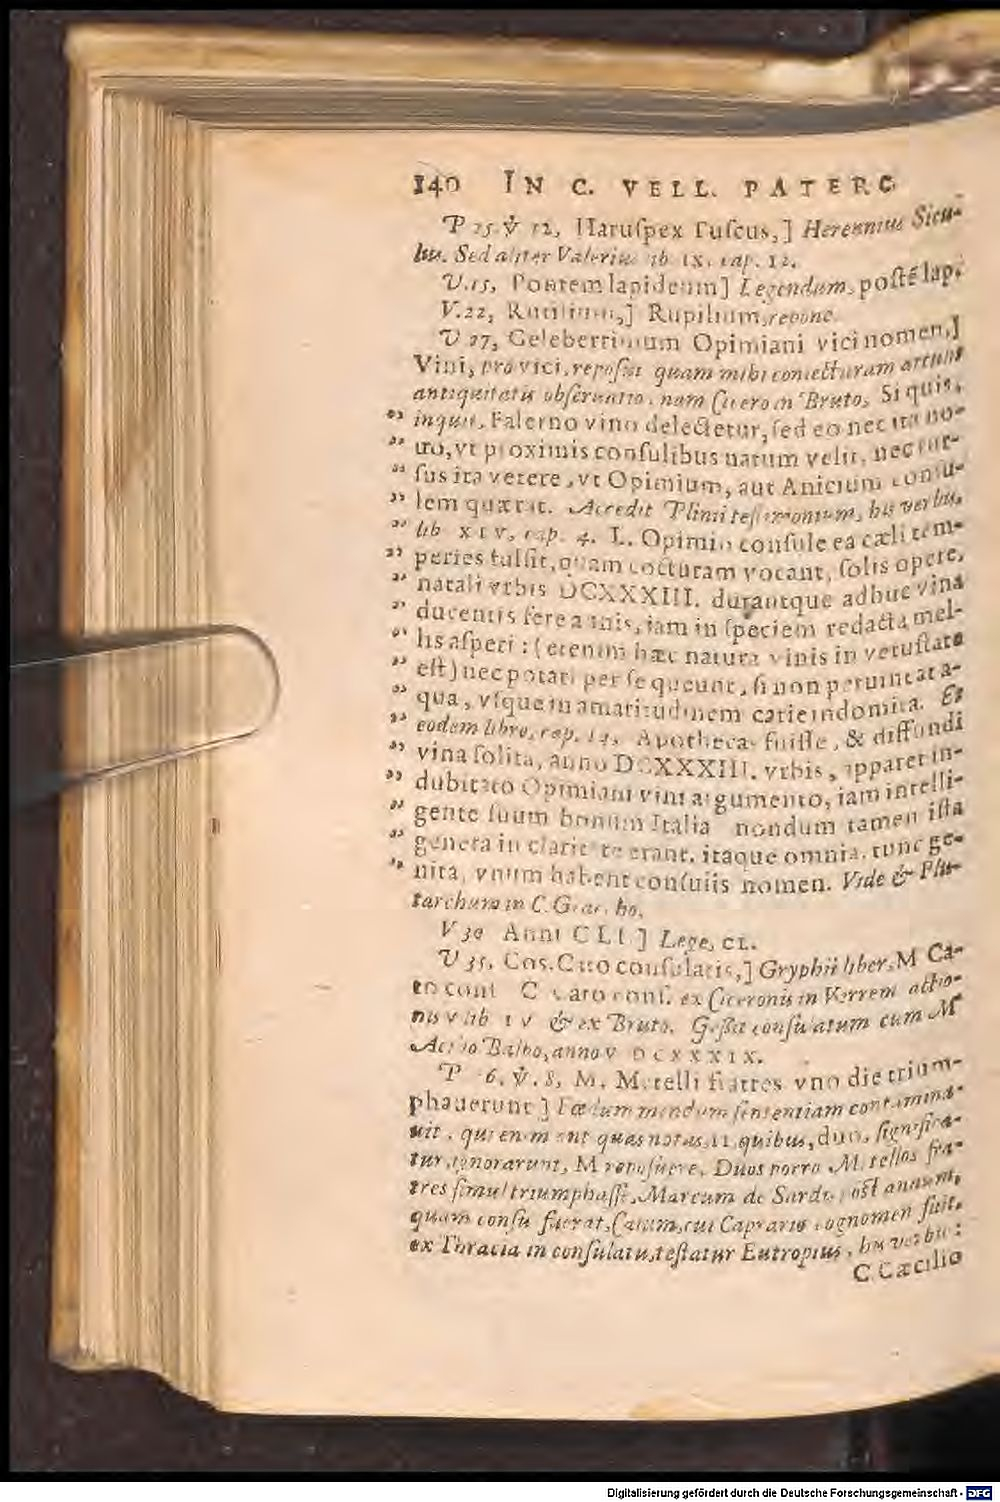 140 IN C. VELL. PATERC
P 25. V 12, Haruſpex Tuſcus,] Herennius Sicu-
lus. Sed aliter Valerius lib. IX. cap. 12.
V.15, Pontem lapideum] Legendum, poſtē lapi.
V.22, Rutilium,] Rupilium, repone.
V 27, Celeberrimum Opimiani vici nomen,]
Vini, pro vici, repoſui quam mihi coniecturam attulit
antiquitatis obſeruatio. nam Cicero in Bruto, Si quis,
" inquit, Falerno vino delectetur, ſed eo nec ita no-
" uo, vt proximis conſulibus natum velit, nec rur-
" ſus ita vetere, vt Opimium, aut Anicium conſu-
" lem quærat. Accedit Plinii teſtimonium, his verbis,
" lib XIV, cap. 4. L. Opimio conſule ea cæli tem-
" peries fulſit, quam cocturam vocant, ſolis opere,
" natali vrbis DCXXXIII. durantque adhuc vina
" ducentis fere annis, iam in ſpeciem redacta mel-
" lis aſperi: (etenim hæc natura vinis in vetuſtate
" eſt) nec potari per ſe queunt, ſi non peruincat a-
" qua, vſque in amaritudinem carie indomita. Et
" eodem libro, cap. 14, Apothecas fuiſſe, & diffundi
" vina ſolita, anno DCXXXIII. vrbis, apparet in-
" dubitato Opimiani vini argumento, iam intelli-
" gente ſuum bonum Italia nondum tamen iſta
" genera in claritate erant. itaque omnia, tunc ge-
" nita, vnum habent conſulis nomen. Vide & Plu-
tarchum in C. Graccho.
V 30 Anni CLI] Lege, CL.
V 35, Cos. Cato conſularis,] Gryphii liber, M Ca-
to conſ C Cato conſ. ex Ciceronis in Verrem actio-
nis V lib IV & ex Bruto. Geſsit conſulatum cum M
Acilio Balbo, anno V DCXXXIX.
P 26. V. 8, M. Metelli fratres vno die trium-
phauerunt] Fœdum mendum ſententiam contamina-
uit. qui enim ant quas notas, II. quibus, duo, ſignifica-
tur, ignorarunt, M repoſuere. Duos porro Metellos fra-
tres ſimul triumphaſſe, Marcum de Sardis poſt annum,
quam conſul fuerat, Caium, cui Caprario cognomen fuit,
ex Thracia in conſulatu, teſtatur Eutropius, his verbis:
C. Cæcilio
Digitalisierung gefördert durch die Deutsche Forschungsgemeinschaft - DFG